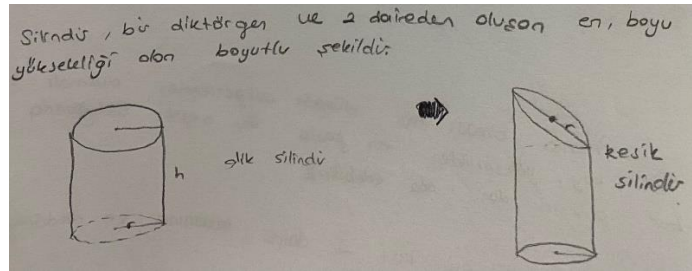 Silindir, bir diktörgen ve 2 daireden oluşan en, boyu
yüksekliği olan boyutlu şekildir.
r
h
dik silindir
r
r
kesik
silindir